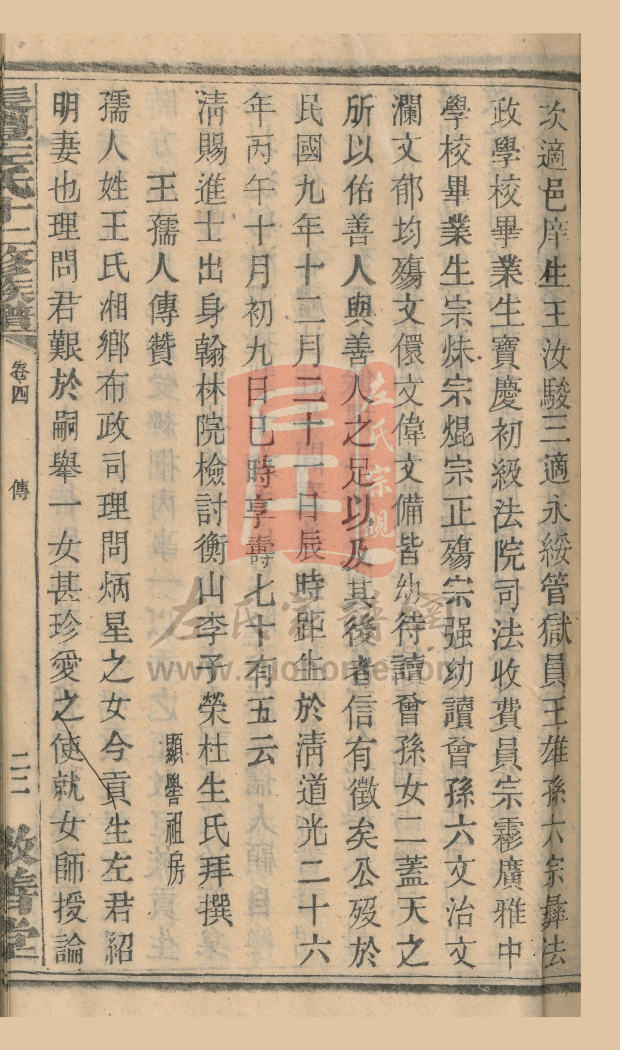 次適邑庠生王汝駿三適永綏管獄員王雄孫六宗彝法
政學校畢業生寶慶初級法院司法收費員宗霱廣雅中
學校畢業生宗炑宗焜宗正殤宗强幼讀曾孫六文治文
瀾文郁均殤文儇文偉文備皆幼待讀曾孫女二蓋天之
所以佑善人與善人之足以及其後者信有徵矣公歿於
民國九年十二月二十一日辰時距生於淸道光二十六
年丙午十月初九日巳時享壽七十有五云
淸賜進士出身翰林院檢討衡山李子榮杜生氏拜撰
王孺人傳贊
顯譽祖房
孺人姓王氏湘鄉布政司理問炳星之女今貢生左君紹
明妻也理問君艱於嗣舉一女甚珍愛之使就女師授論
左氏十二修族譜
卷四
傳
二二
敦善堂
左氏宗親
www.zuohome.com